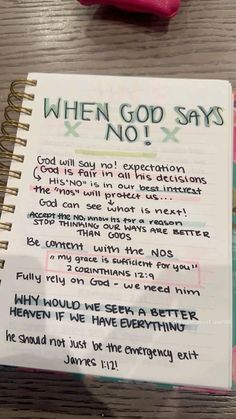 WHEN GOD SAYS
NO!
God will say no! expectation
God is fair in all his decisions
His "NO" is in our best interest
the "nos" will protect us...
God can see what is next!
Accept the NO, know its for a reason
STOP THINKING OUR WAYS ARE BETTER
THAN GODS
Be content with the NOS
"my grace is sufficient for you"
2 CORINTHIANS 12:9
Fully rely on God - we need him
WHY WOULD WE SEEK A BETTER
HEAVEN IF WE HAVE EVERYTHING
he should not just be the emergency exit
James 1:12!